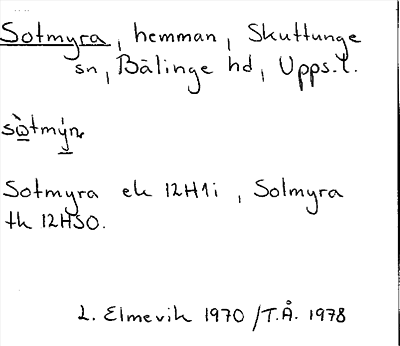 Sotmyra, hemman, Skuttunge
sn, Bälinge hd, Upps. l.
Sotmyra ek 12H1i, Solmyra
tk 12HSO.
L. Elmevik 1970 / T.Å. 1978